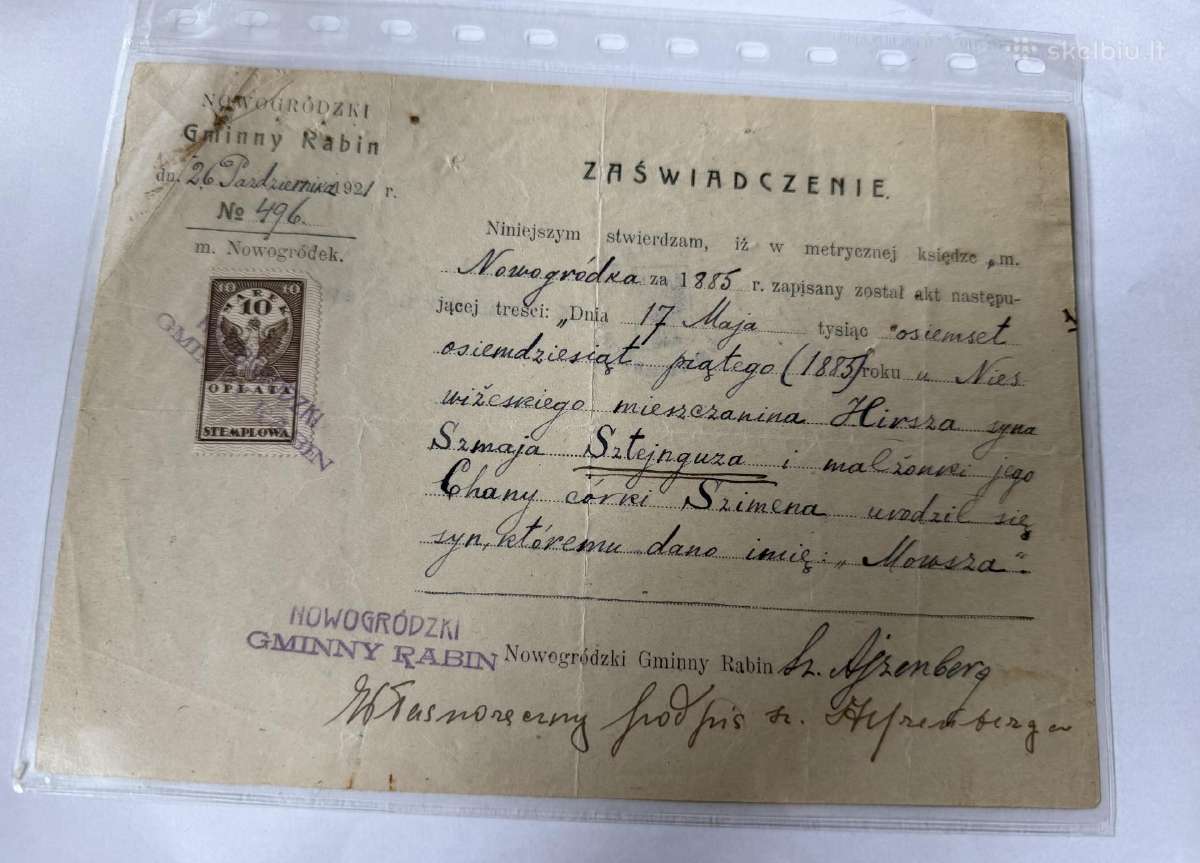 skelbiu.lt
NOWOGRÓDZKI
Gminny Rabin
dn. 26 Października 1921 r.
№ 496.
m. Nowogródek.
10 10
MAREK
10
OPŁATA
STEMPLOWA
ZAŚWIADCZENIE.
Niniejszym stwierdzam, iż w metrycznej księdze m.
Nowogródka za 1885 r. zapisany został akt następu-
jącej treści: „Dnia 17 Maja tysiąc osiemset
osiemdziesiąt piątego (1885) roku u Nies
wiżeskiego mieszczanina Hirsza syna
Szmaja Sztejnguza i małżonki jego
Chany córki Szimena urodził się
syn, któremu dano imię: „Mowsza".
NOWOGRÓDZKI
GMINNY RABIN
Nowogródzki Gminny Rabin Sz. Ajzenberg
Własnoręczny podpis